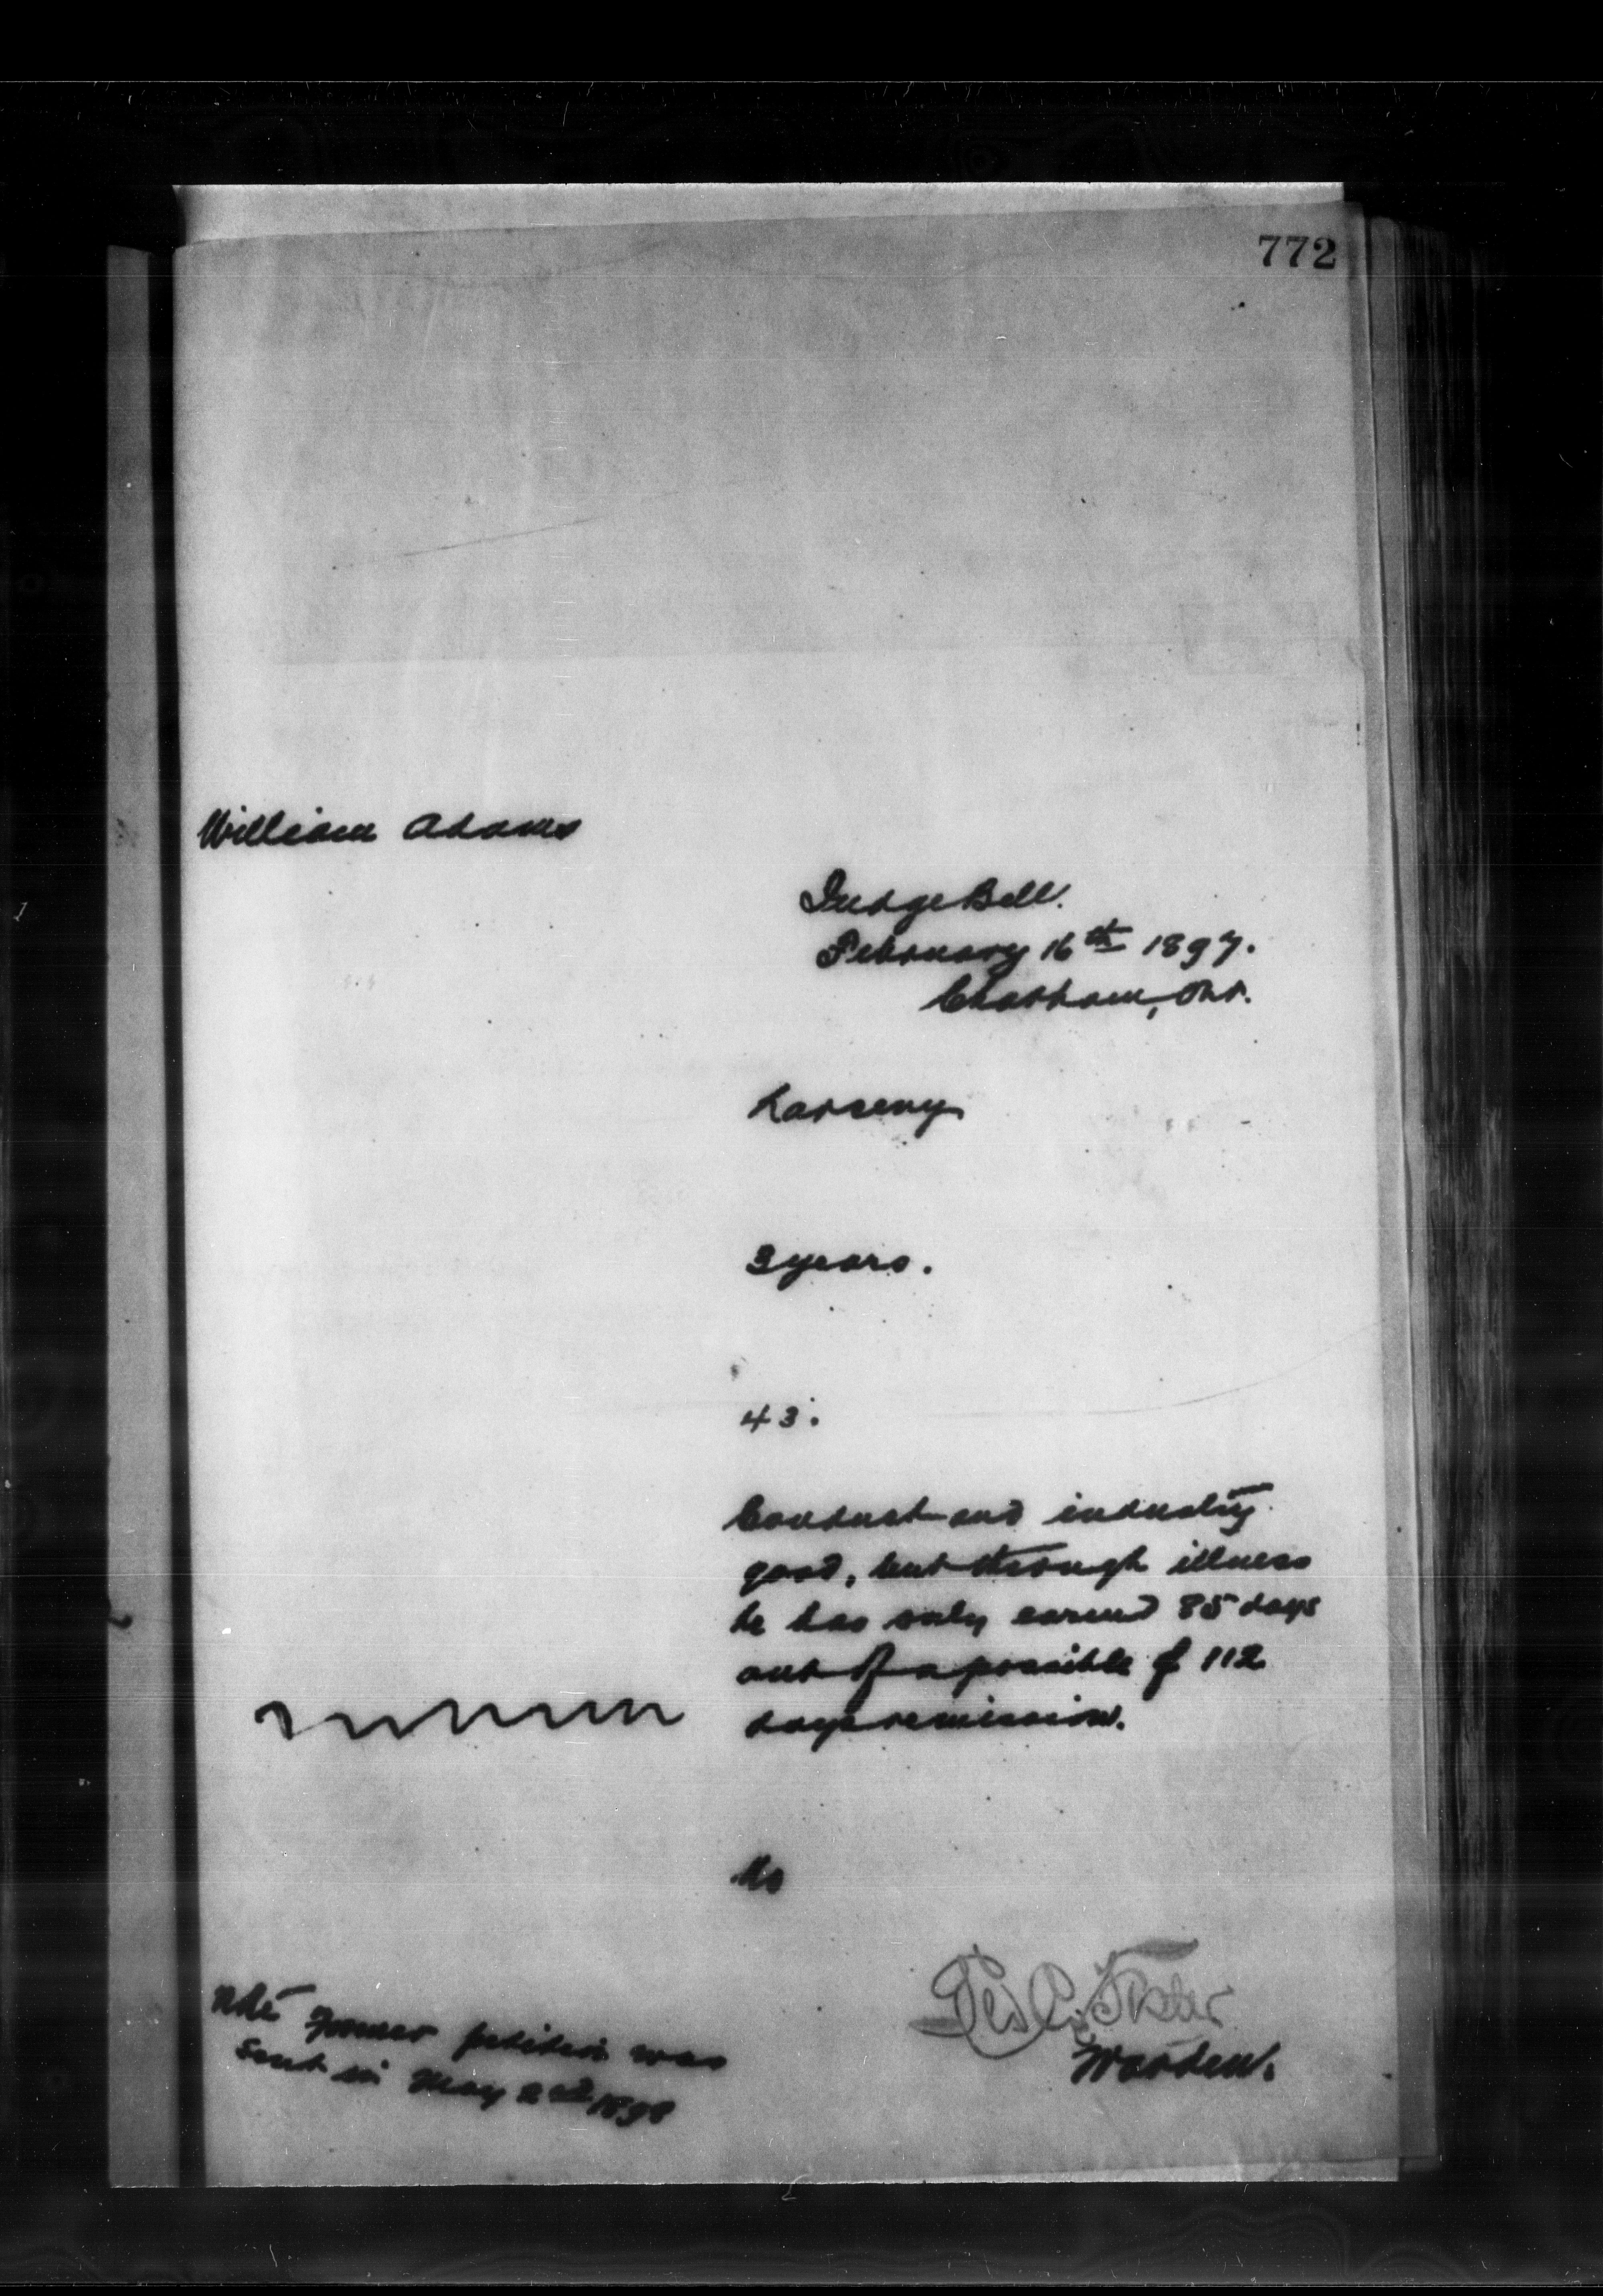 772
William Adams
Judge Bell.
February 16th 1897.
Chatham, Ont.
Larceny
3 years.
43.
Conduct and industry
good, but through illness
he has only earned 85 days
out of a possible of 112
days remission.
No
Warden.
Note Former petition was
Sent in May 2nd 1898